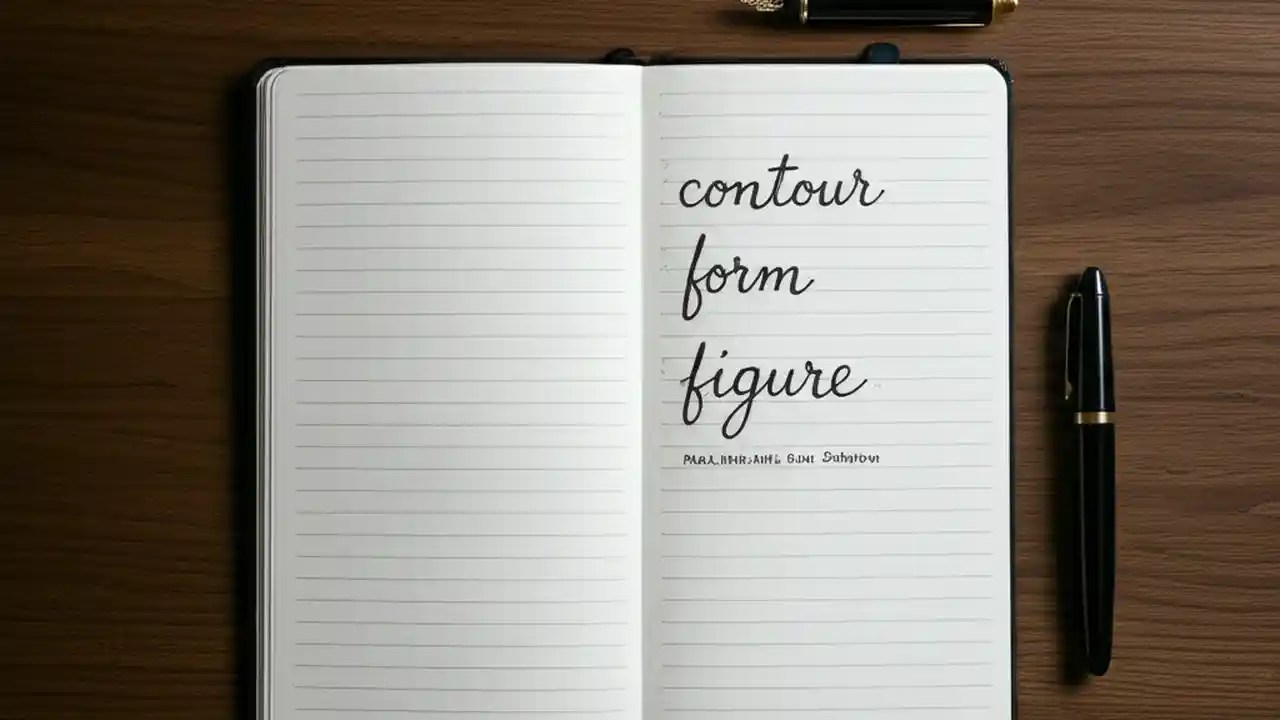 contour
form
figure